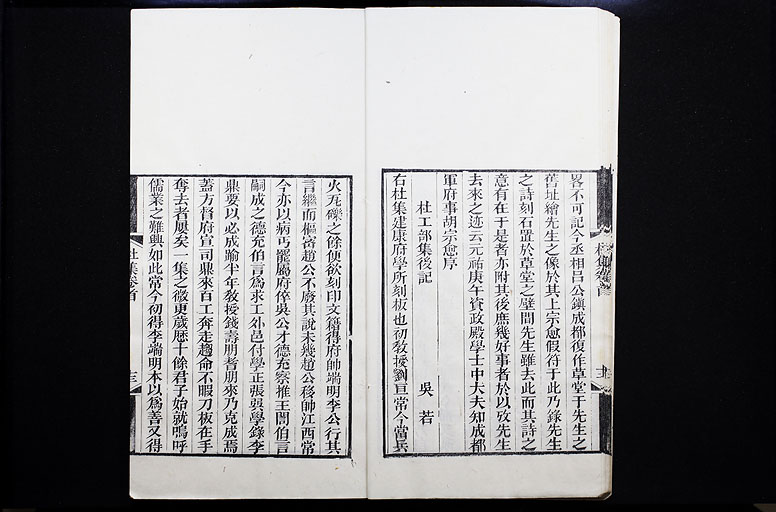 畧不可記今丞相呂公鎮成都復作草堂于先生之
舊址繪先生之像於其上宗愈假符于此乃錄先生
之詩刻石置於草堂之壁間先生雖去此而其詩之
意有在于是者亦附其後庶幾好事者於以攷先生
去來之迹云元祐庚午資政殿學士中大夫知成都
軍府事胡宗愈序
杜工部集後記
吳若
右杜集建康府學所刻板也初敎授劉亘常今當兵
火瓦礫之餘便欲刻印文籍得府帥端明李公行其
言繼而樞密趙公不廢其說未幾趙公移帥江西常
今亦以病丐罷屬府倅吳公才德充察推王誾伯言
嗣成之德充伯言爲求工外邑付學正張巽學錄李
鼎要以必成踰半年敎授錢壽朋耆朋來乃克成焉
蓋方督府宣司鼎來百工奔走趨命不暇刀板在手
奪去者屢矣一集之微更歲歷十餘君子始就嗚呼
儒業之難興如此常今初得李端明本以爲善又得
杜集卷首